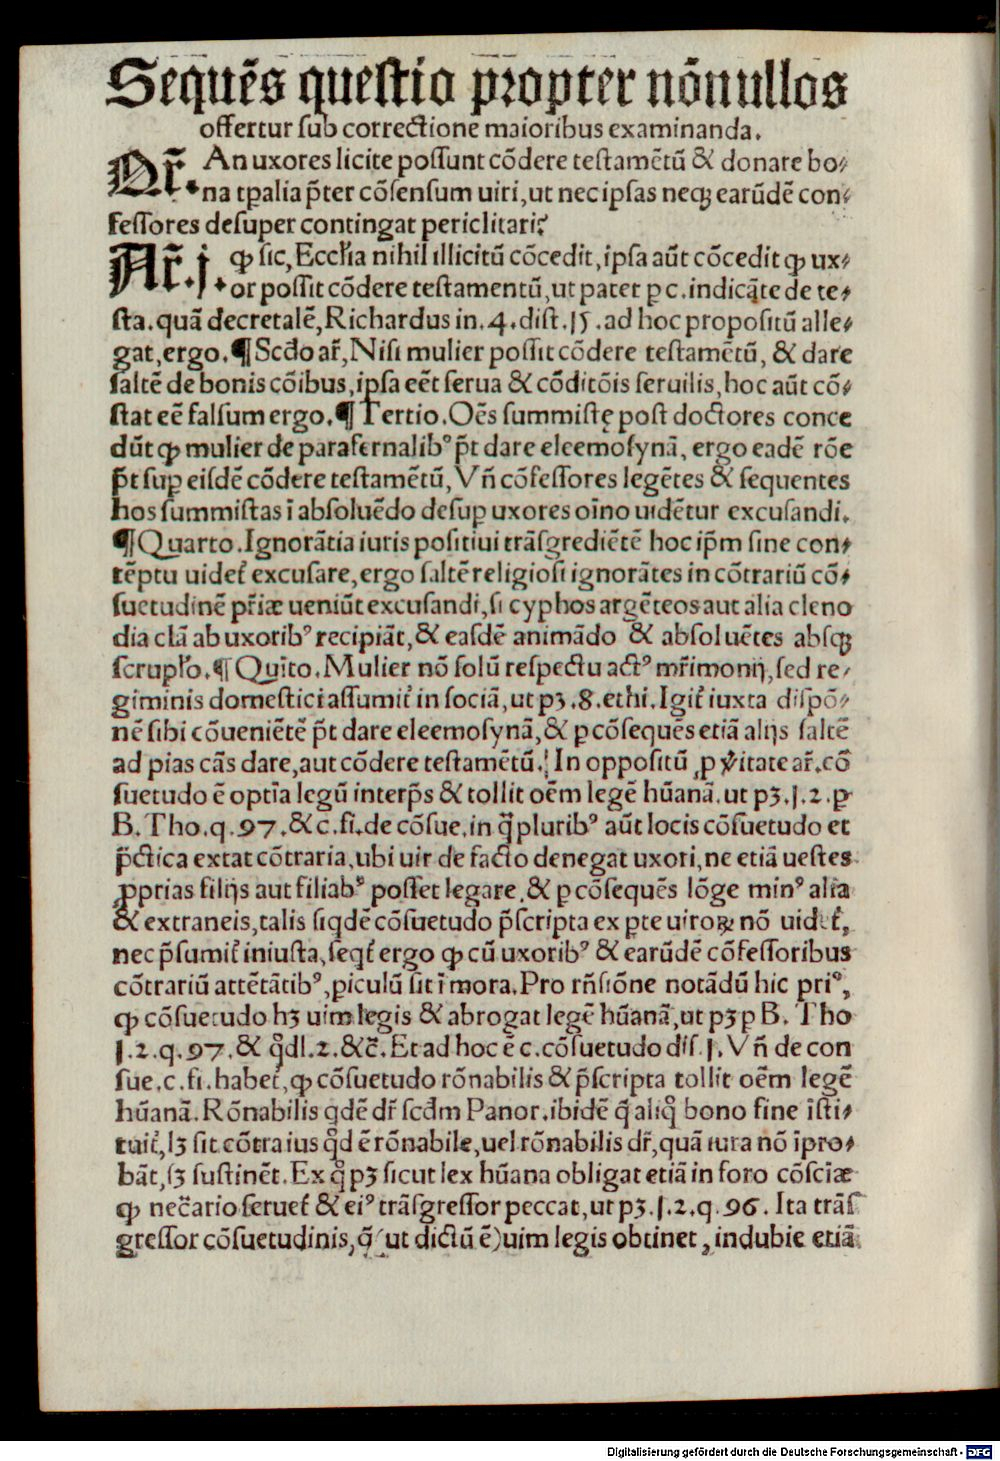 Sequēs questio propter nōnullos
offertur sub correctione maioribus examinanda.
Qr̄. An uxores licite possunt cōdere testamētū & donare bo⸗
na tꝑalia p̄ter cōsensum uiri, ut nec ipsas neqꝫ earūdē con⸗
fessores desuper contingat periclitari?
Ar̄. j. ꝙ sic, Eccl̄ia nihil illicitū cōcedit, ipsa aūt cōcedit ꝙ ux⸗
or possit cōdere testamentū, ut patet ꝑ c. indicāte de te⸗
sta. quā decretalē, Richardus in. 4. dist. 15. ad hoc propositū alle⸗
gat, ergo. ¶ Scd̄o ar̄, Nisi mulier possit cōdere testamētū, & dare
saltē de bonis cōibus, ipsa eēt serua & cōditōis seruilis, hoc aūt cō⸗
stat eē falsum ergo. ¶ Tertio. Oēs summistę post doctores conce
dūt ꝙ mulier de parafernalibꝰ p̄t dare eleemosynā, ergo eadē rōe
p̄t suꝑ eisdē cōdere testamētū, Vn̄ cōfessores legētes & sequentes
hos summistas ī absoluēdo desuꝑ uxores oīno uidētur excusandi.
¶ Quarto. Ignorātia iuris positiui trāsgrediētē hoc ip̄m sine con⸗
tēptu uidet̄ excusare, ergo saltē religiosi ignorātes in cōtrariū cō⸗
suetudinē pr̄iæ ueniūt excusandi, si cyphos argēteos aut alia cleno
dia clā ab uxoribꝰ recipiāt, & easdē animādo & absoluētes absqꝫ
scrupl̄o. ¶ Quīto. Mulier nō solū respectu actꝰ mr̄imonij, sed re⸗
giminis domestici assumit̄ in sociā, ut pꝫ. 8. ethi. Igit̄ iuxta dispō⸗
nē sibi cōueniētē p̄t dare eleemosynā, & ꝑ cōsequēs etiā alijs saltē
ad pias cās dare, aut cōdere testamētū. ¶ In oppositū ꝓ ūitate ar̄. cō
suetudo ē optīa legū interp̄s & tollit oēm legē hūanā. ut pꝫ. j. 2. ꝑ
B. Tho. q. 97. & c. fi. de cōsue. in q̄ pluribꝰ aūt locis cōsuetudo et
p̄ctica extat cōtraria, ubi uir de facto denegat uxori, ne etiā uestes
ꝓprias filijs aut filiabꝰ posset legare, & ꝑ cōsequēs lōge minꝰ alia
& extraneis, talis siqdē cōsuetudo p̄scripta ex ꝑte uiroꝝ nō uidet̄,
nec p̄sumit̄ iniusta, seqt̄ ergo ꝙ cū uxoribꝰ & earūdē cōfessoribus
cōtrariū attētātibꝰ, piculū sit ī mora. Pro rn̄siōne notādū hic priꝰ,
ꝙ cōsuetudo hꝫ uim legis & abrogat legē hūanā, ut pꝫ ꝑ B. Tho
j. 2. q. 97. & q̄dl. 2. &c̄. Et ad hoc ē c. cōsuetudo dis. j. Vn̄ de con
sue. c. fi. habet̄, ꝙ cōsuetudo rōnabilis & p̄scripta tollit oēm legē
hūanā. Rōnabilis qdē dr̄ scd̄m Panor. ibidē q̄ aliq̄ bono fine īsti⸗
tuit̄, lꝫ sit cōtra ius q̄d ē rōnabile, uel rōnabilis dr̄, quā iura nō īpro⸗
bāt, sꝫ sustinēt. Ex q̄ pꝫ sicut lex hūana obligat etiā in foro cōsciæ
ꝙ nec̄ario seruet̄ & eiꝰ trāsgressor peccat, ut pꝫ. j. 2. q. 96. Ita trās
gressor cōsuetudinis, q̄ (ut dictū ē) uim legis obtinet, indubie etiā
Digitalisierung gefördert durch die Deutsche Forschungsgemeinschaft - DFG